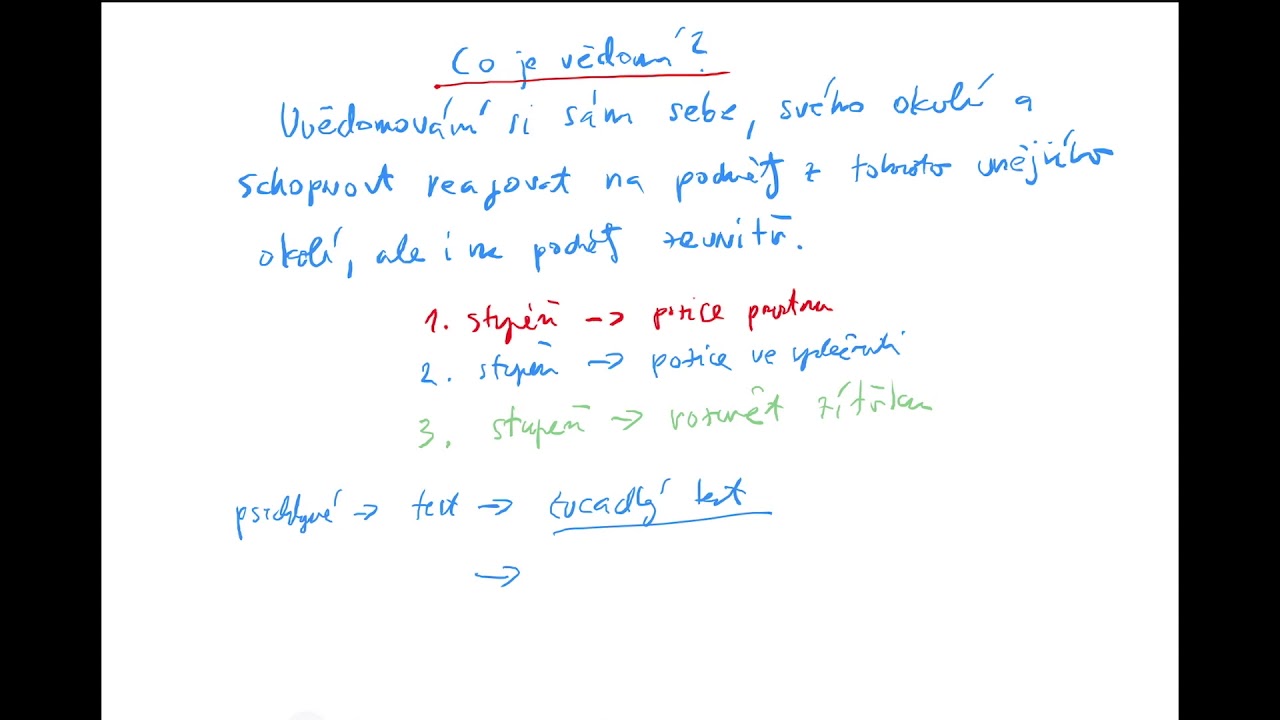 Co je vědomí?
Uvědomování si sám sebe, svého okolí a
schopnost reagovat na podněty z tohoto vnějšího
okolí, ale i na podněty zevnitř.
1. stupeň -> pozice prostoru
2. stupeň -> pozice ve společnosti
3. stupeň -> rozumět zítřku
-> test -> zrcadlový test
->